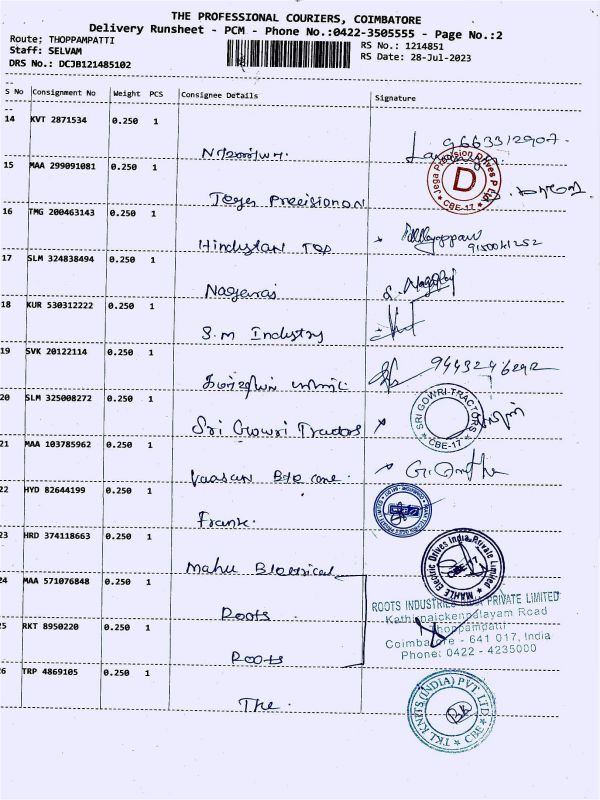 THE PROFESSIONAL COURIERS, COIMBATORE
Delivery Runsheet - PCM - Phone No.:0422-3505555 - Page No.:2
Route; THOPPAMPATTI
Staff: SELVAM
DRS No.: DCJB121485102
RS No.: 1214851
RS Date: 28-Jul-2023
S No Consignment No Weight PCS Consignee Details Signature
14 KVT 2871534 0.250 1
9663312907
15 MAA 299091081 0.250 1
Tega Precisionan
Jega Precision Drives P Ltd. D CBE-17
16 TMG 200463143 0.250 1
Hindustan Top
9150041252
17 SLM 324838494 0.250 1
Nagaraj
S. Nagaraj
18 KUR 530312222 0.250 1
S.m Industry
19 SVK 20122114 0.250 1
9443246292
20 SLM 325008272 0.250 1
Sri Gowri Tractors
SRI GOWRI-TRACTORS CBE-17
21 MAA 103785962 0.250 1
Vaasan
22 HYD 82644199 0.250 1
Frank.
23 HRD 374118663 0.250 1
Mahle Electrical
MAHLE Electric Drives India Private Limited
24 MAA 571076848 0.250 1
Roots
ROOTS INDUSTRIES INDIA PRIVATE LIMITED
Kathirnaickenpalayam Road
Thoppampatti
Coimbatore - 641 017, India
Phone: 0422 - 4235000
25 RKT 8950220 0.250 1
Roots
26 TRP 4869105 0.250 1
The.
TKL KNITS (INDIA) PVT LTD CBE